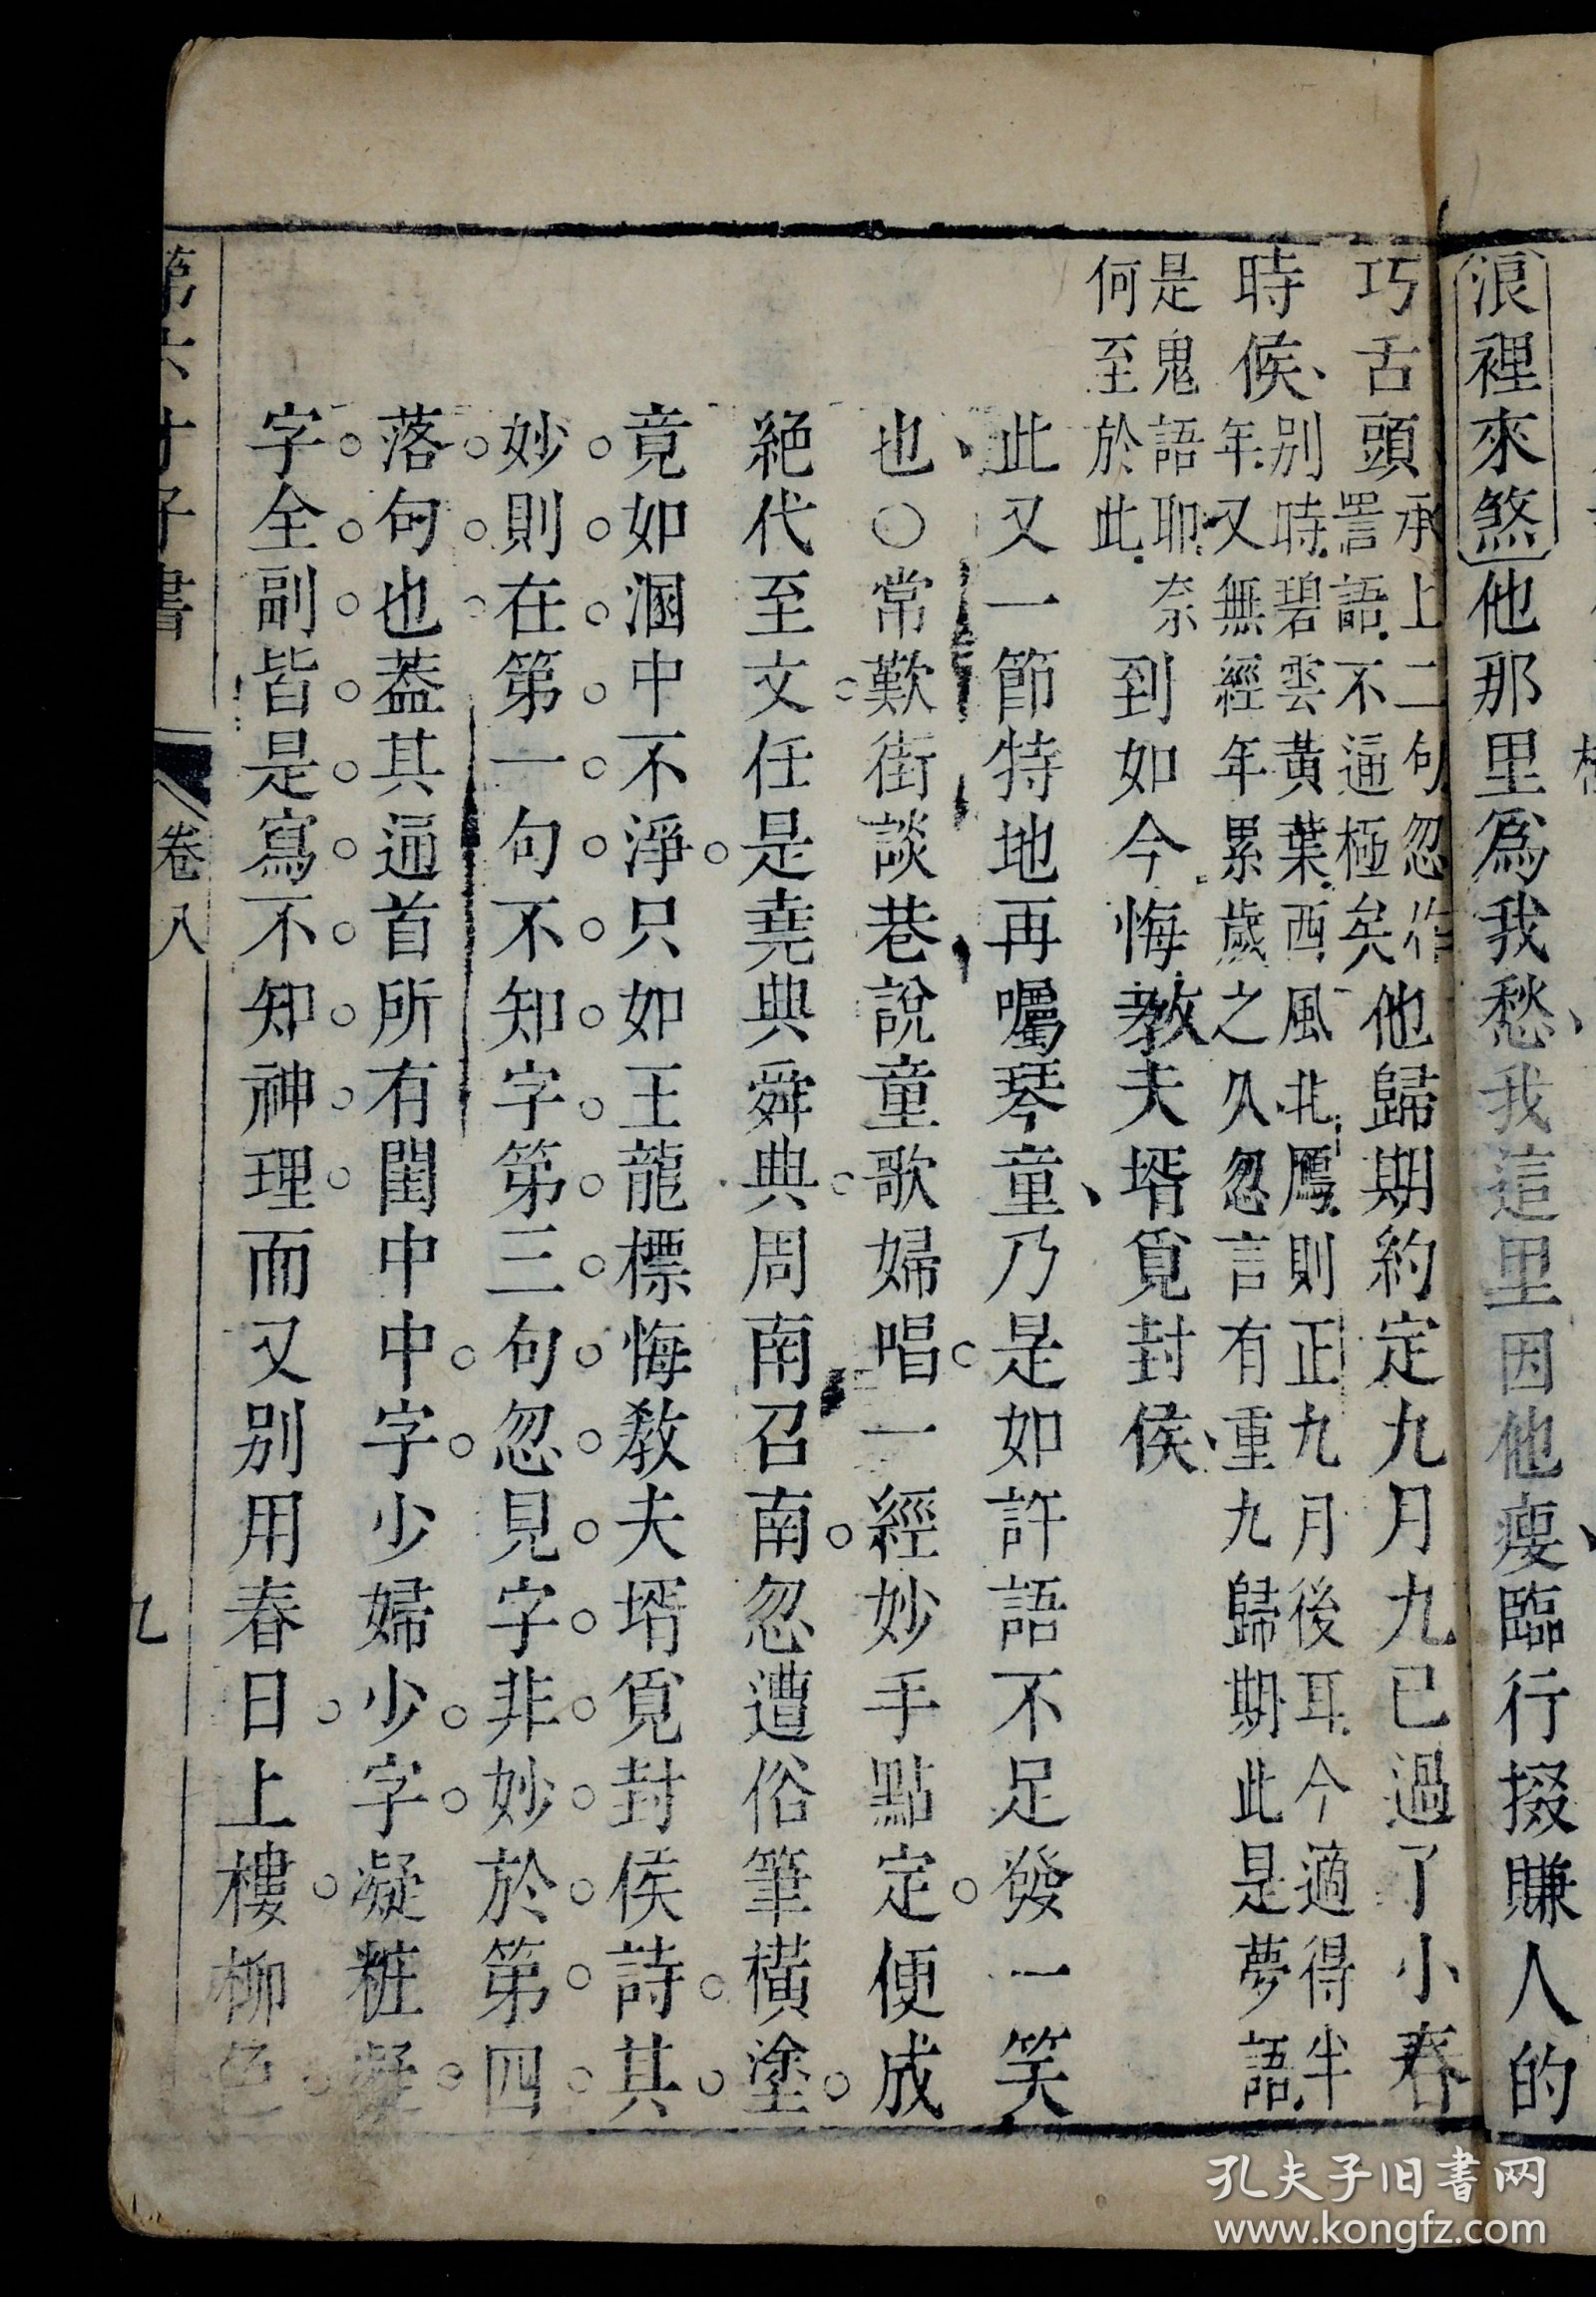 浪裡來煞他那里爲我愁、我這里因他瘦、臨行掇賺人的
巧舌頭承上二句忽作詈語不逼極矣他歸期約定九月九已過了小春
時候、别時碧雲黃葉西風北鴈則正九月後耳今適得半年又無經年累歲之久忽言有重九歸期此是夢語
是鬼語耶奈何至於此到如今悔教夫壻覓封侯、
此又一節特地再囑琴童、乃是如許語不足發一笑
也、○常歎街談巷說童歌婦唱一經妙手點定便成
絶代至文任是堯典舜典周南召南忽遭俗筆橫塗
竟如溷中不淨只如王龍標悔教夫壻覓封侯詩其
妙則在第一句不知字第三句忽見字非妙於第四
落句也蓋其通首所有閨中中字少婦少字凝粧凝
字全副皆是寫不知神理而又别用春日上樓柳色
第六才子書
卷八
九
孔夫子旧書网
www.kongfz.com